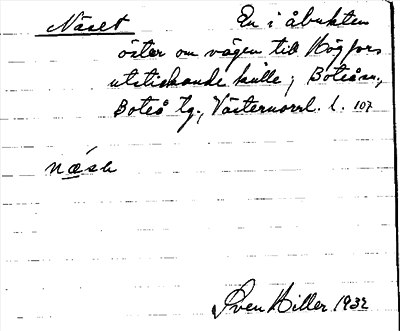 Näset En i åbukten
öster om vägen till Högfors
utstickande kulle; Boteå sn.,
Boteå tg., Västernorrl. l. 107
næ̀sɩ
Sven Hiller 1932